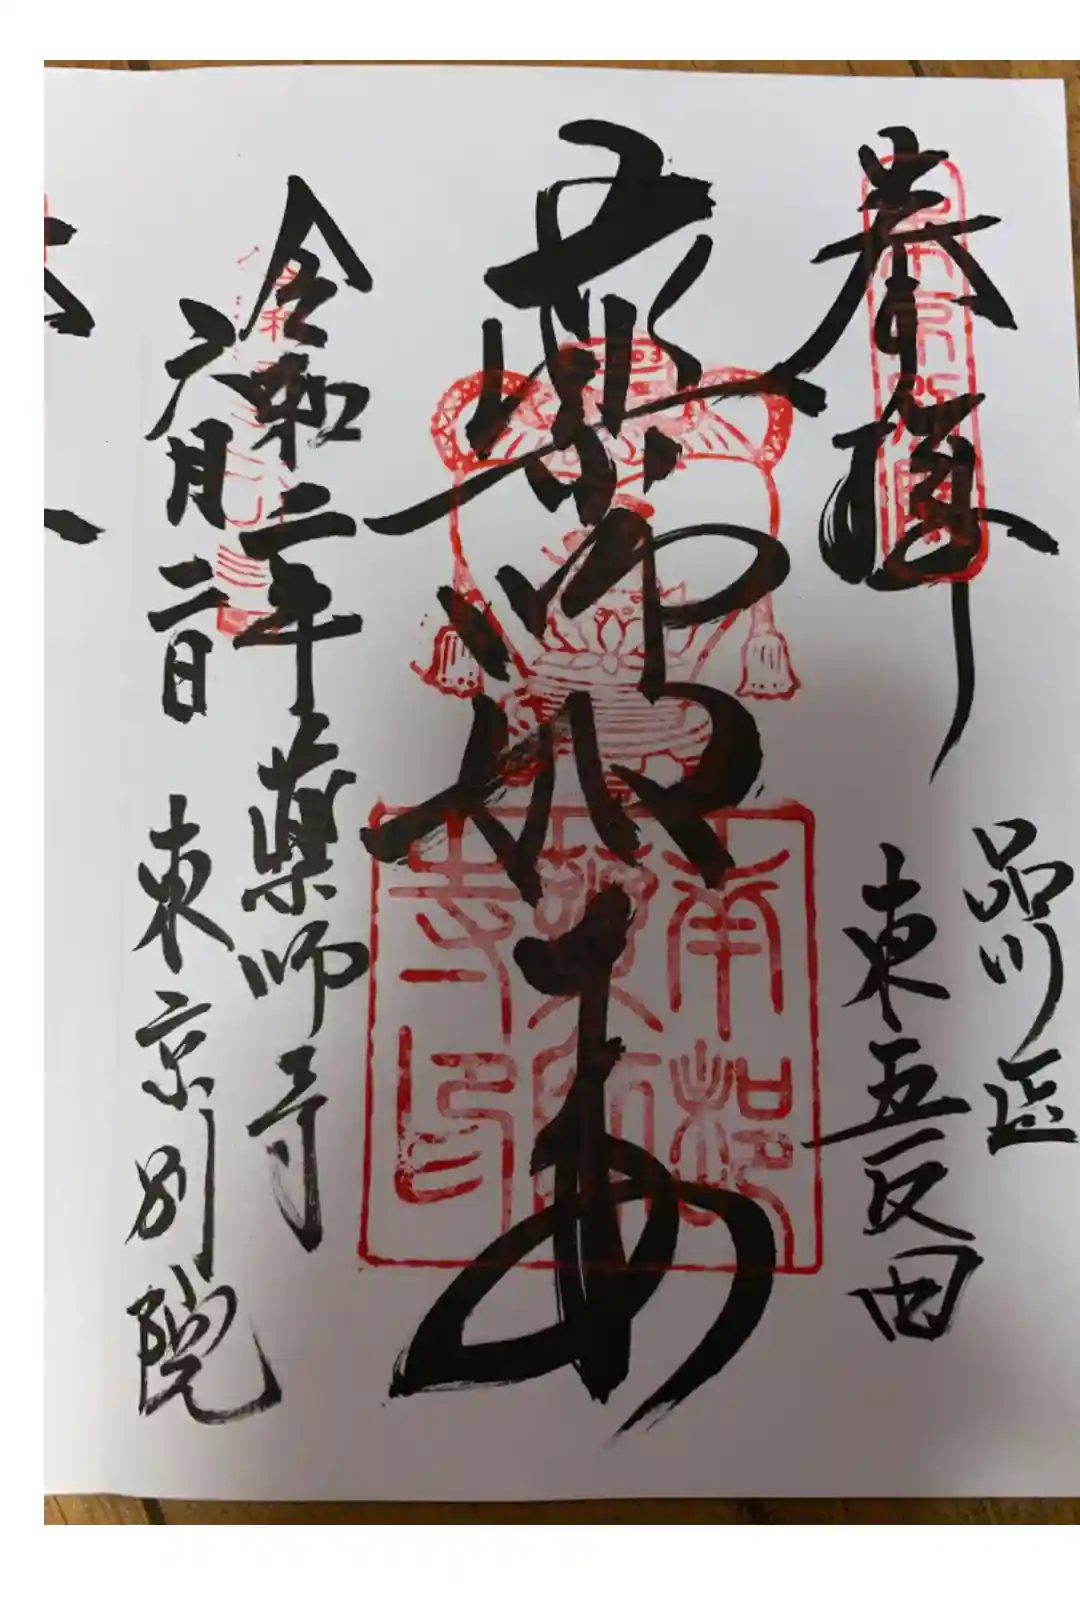 奉拝
品川区
東五反田
薬師如来
令和二年 薬師寺
六月二日 東京別院